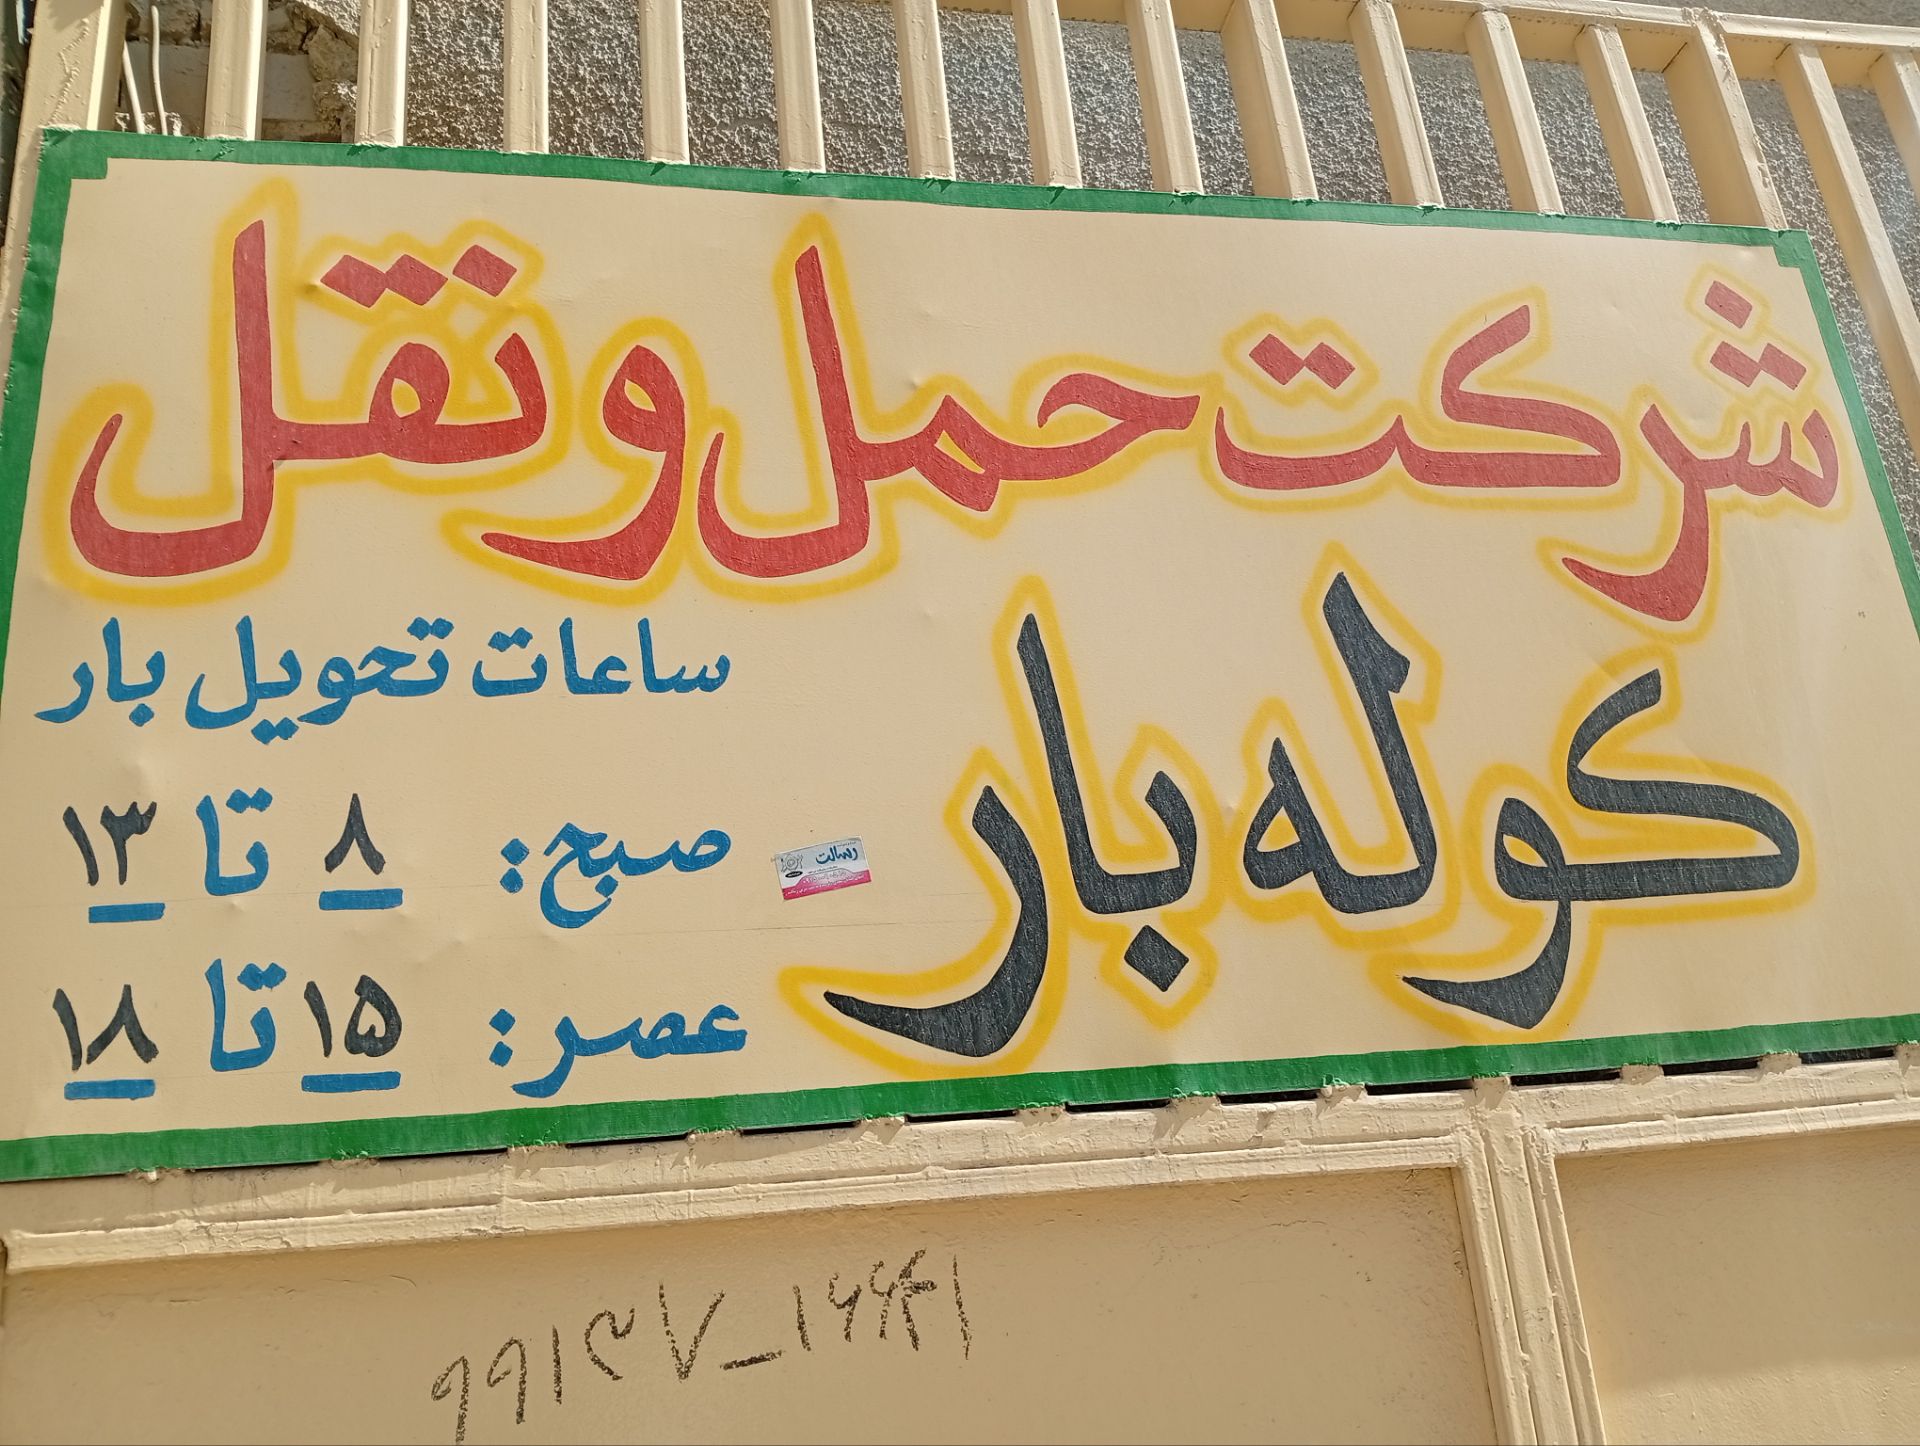 شرکت حمل و نقل
کوله بار
ساعات تحویل بار
صبح: ۸ تا ۱۳
عصر: ۱۵ تا ۱۸
رسالت